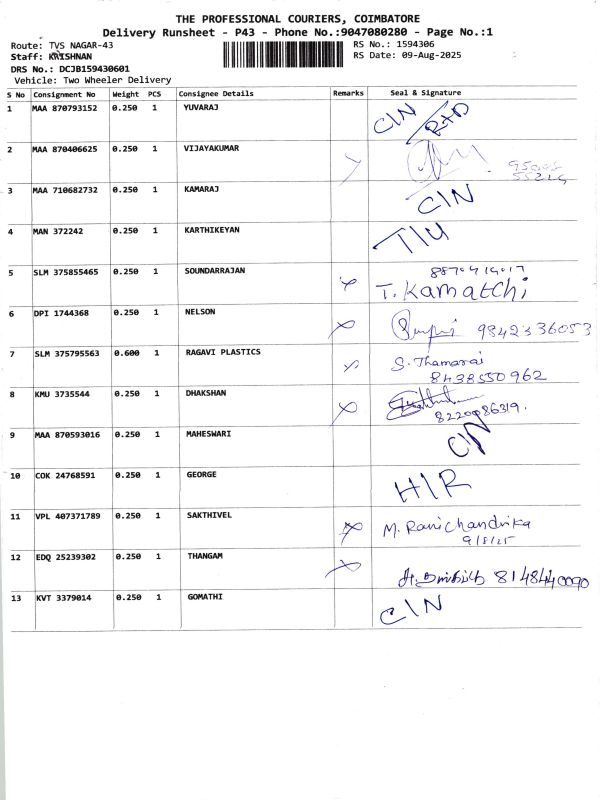 THE PROFESSIONAL COURIERS, COIMBATORE
Delivery Runsheet - P43 - Phone No.:9047080280 - Page No.:1
Route: TVS NAGAR-43 RS No.: 1594306
Staff: KRISHNAN RS Date: 09-Aug-2025
DRS No.: DCJB159430601
Vehicle: Two Wheeler Delivery
S No Consignment No Weight PCS Consignee Details Remarks Seal & Signature
1 MAA 870793152 0.250 1 YUVARAJ C/N
2 MAA 870406625 0.250 1 VIJAYAKUMAR
3 MAA 710682732 0.250 1 KAMARAJ C/N
4 MAN 372242 0.250 1 KARTHIKEYAN
5 SLM 375855465 0.250 1 SOUNDARRAJAN T. Kamatchi
6 DPI 1744368 0.250 1 NELSON
7 SLM 375795563 0.600 1 RAGAVI PLASTICS S. Thamarai
8438550962
8 KMU 3735544 0.250 1 DHAKSHAN
9 MAA 870593016 0.250 1 MAHESWARI C/N
10 COK 24768591 0.250 1 GEORGE H/R
11 VPL 407371789 0.250 1 SAKTHIVEL M. Ravichandrika
9/8/25
12 EDQ 25239302 0.250 1 THANGAM
13 KVT 3379014 0.250 1 GOMATHI C/N